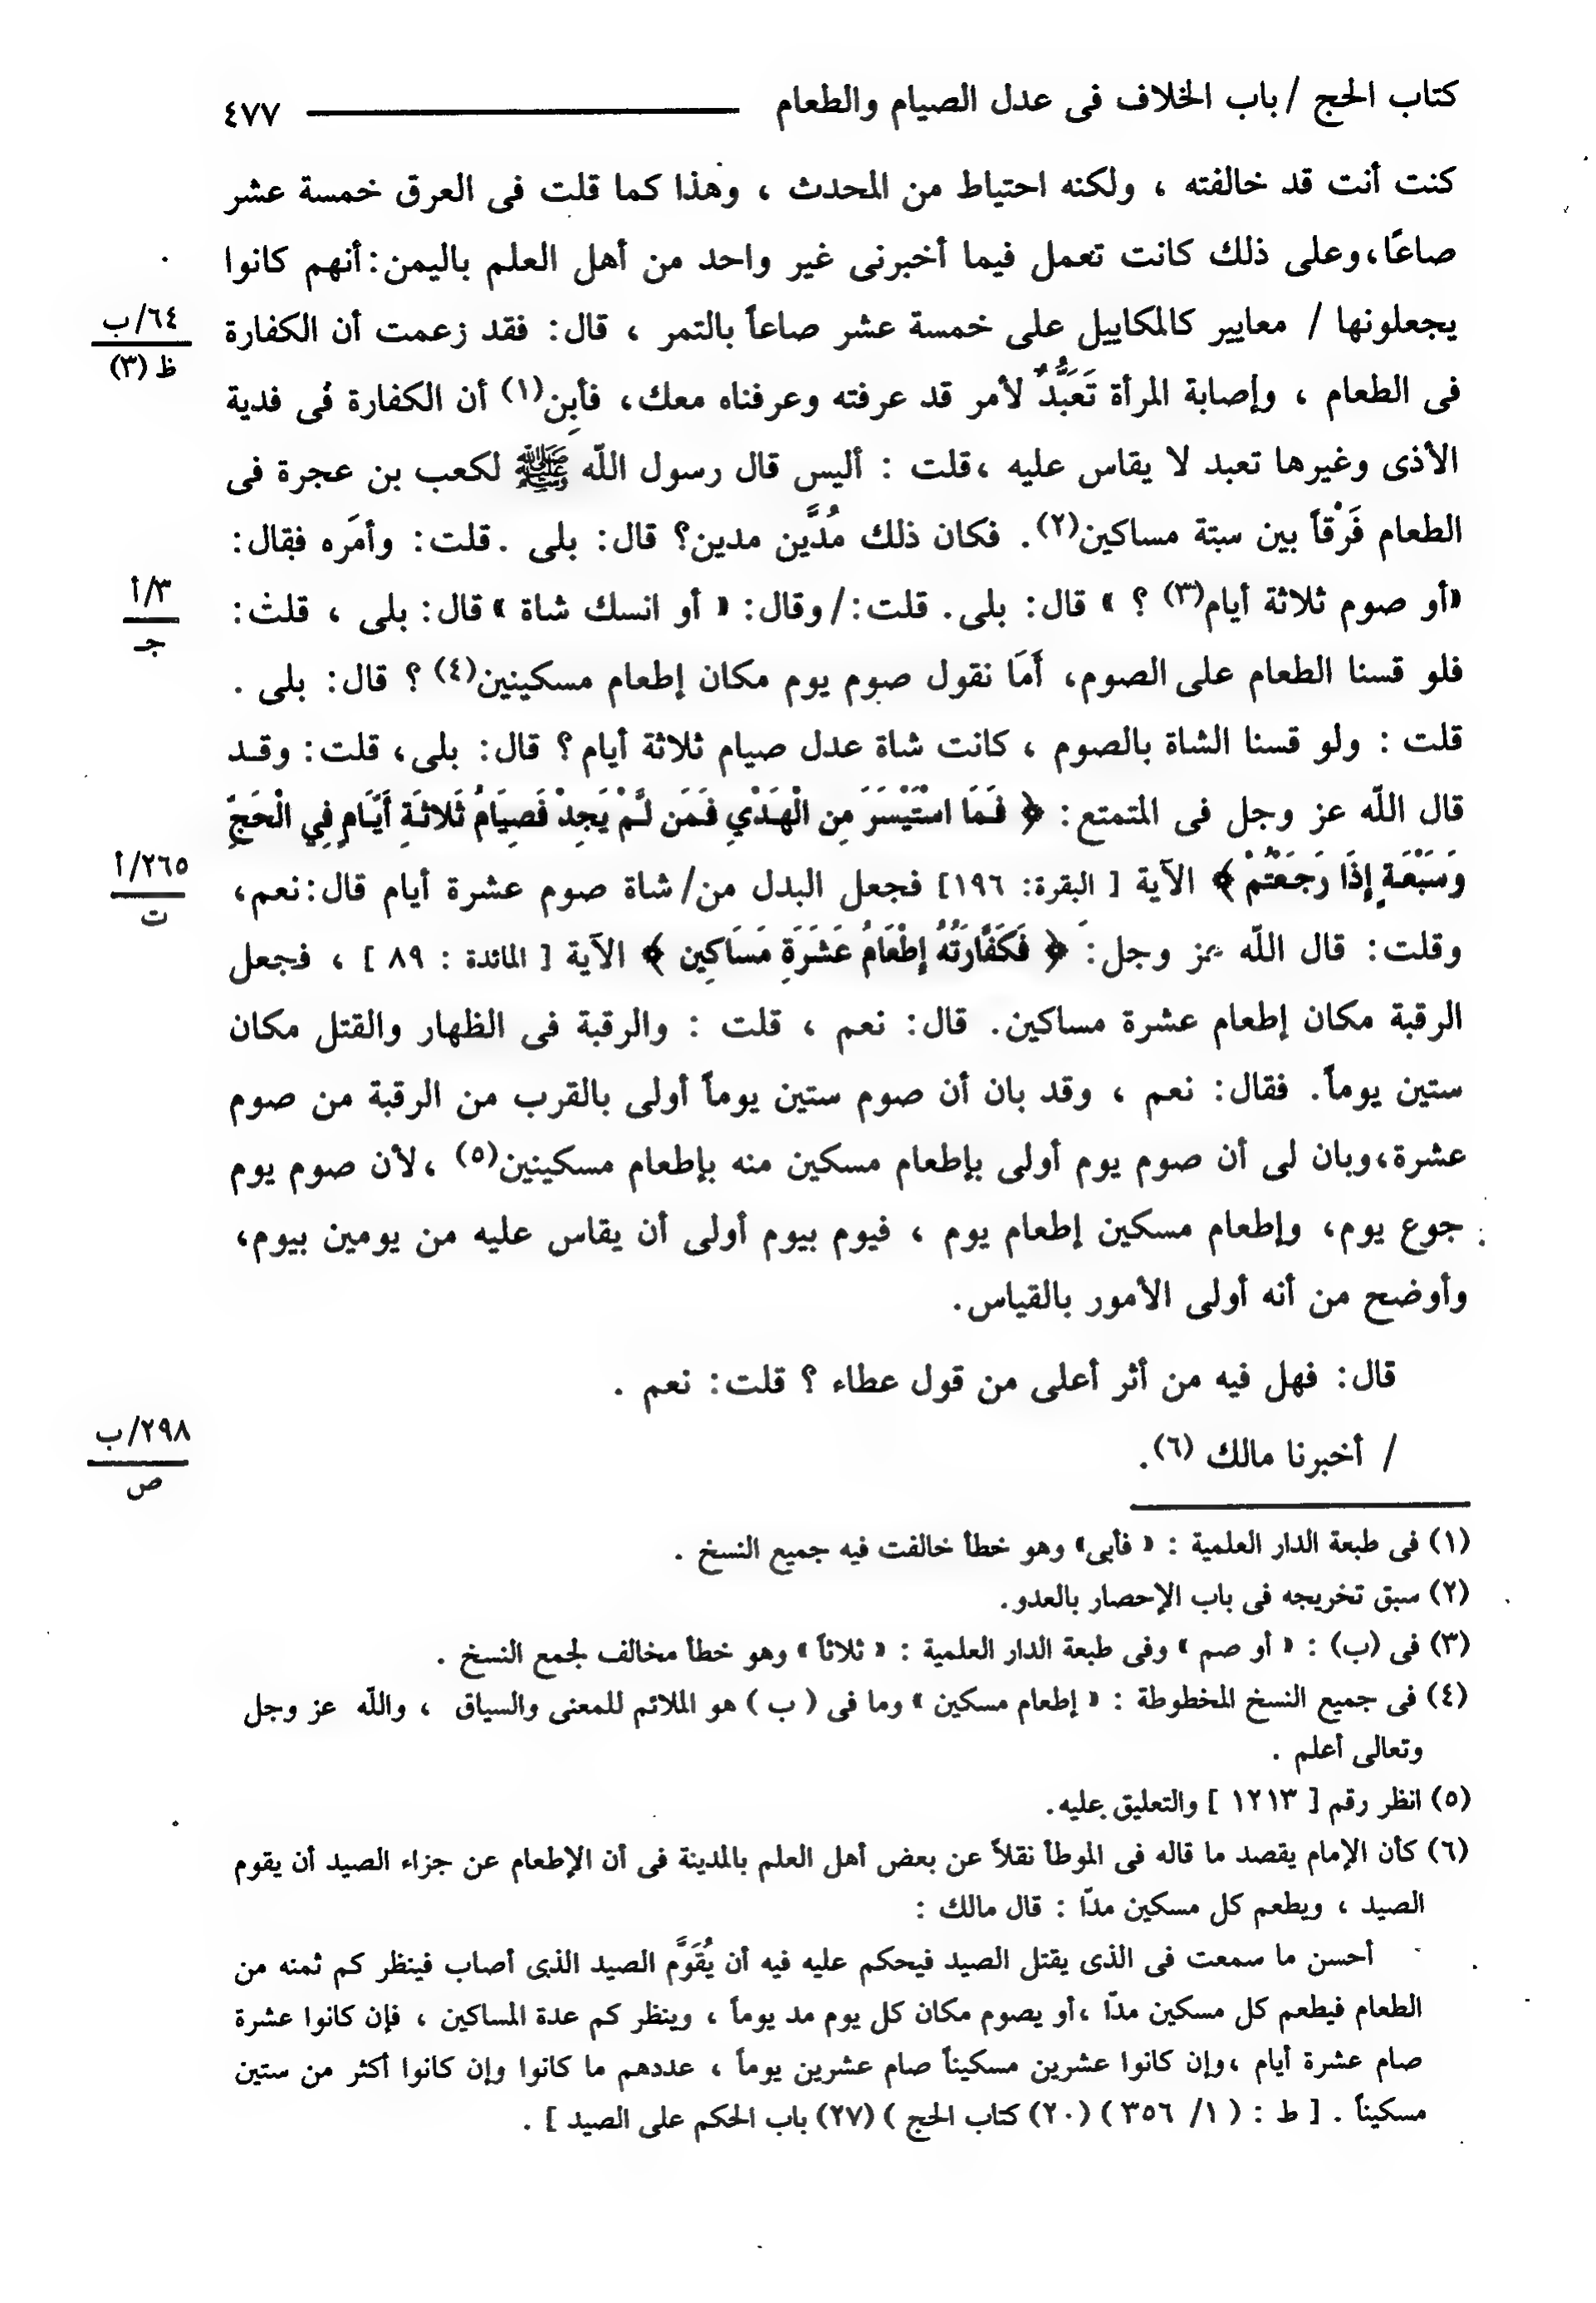 كتاب الحج / باب الخلاف فى عدل الصيام والطعام ٤٧٧
كنت أنت قد خالفته ، ولكنه احتياط من المحدث ، وهذا كما قلت فى العرق خمسة عشر
صاعًا،وعلى ذلك كانت تعمل فيما أخبرنى غير واحد من أهل العلم باليمن:أنهم كانوا
يجعلونها / معايير كالمكاييل على خمسة عشر صاعاً بالتمر ، قال: فقد زعمت أن الكفارة
٦٤/ب
ظ (٣)
فى الطعام ، وإصابة المرأة تَعَبُّدٌ لأمر قد عرفته وعرفناه معك، فأبِن(١) أن الكفارة فى فدية
الأذى وغيرها تعبد لا يقاس عليه ،قلت : أليس قال رسول اللّه ﷺ لكعب بن عجرة فى
الطعام فَرْقاً بين ستة مساكين(٢). فكان ذلك مُدَّين مدين؟ قال: بلى .قلت: وأمَره فقال:
«أو صوم ثلاثة أيام(٣) ؟ » قال: بلى. قلت:/وقال: « أو انسك شاة »قال: بلى ، قلت:
٣/أ
جـ
فلو قسنا الطعام على الصوم، أَمَا نقول صوم يوم مكان إطعام مسكينين(٤) ؟ قال: بلى .
قلت : ولو قسنا الشاة بالصوم ، كانت شاة عدل صيام ثلاثة أيام؟ قال: بلى، قلت: وقـد
قال اللّه عز وجل فى المتمتع: ﴿ فَمَا اسْتَيْسَرَ مِن الْهَدْيِ فَمَن لَّمْ يَجِدْ فَصِيَامُ ثَلاثَةِ أَيَّامٍ فِي الْحَجِّ
وَسَبْعَةٍ إِذَا رَجَعْتُمْ ﴾ الآية [ البقرة: ١٩٦] فجعل البدل من/شاة صوم عشرة أيام قال:نعم،
٢٦٥/أ
ت
وقلت: قال اللّه عز وجل: ﴿ فَكَفَّارَتُهُ إِطْعَامُ عَشَرَةِ مَسَاكِين ﴾ الآية [ المائدة : ٨٩ ] ، فجعل
الرقبة مكان إطعام عشرة مساكين. قال: نعم ، قلت : والرقبة فى الظهار والقتل مكان
ستين يوماً. فقال: نعم ، وقد بان أن صوم ستين يوماً أولى بالقرب من الرقبة من صوم
عشرة،وبان لى أن صوم يوم أولى بإطعام مسكين منه بإطعام مسكينين(٥) ،لأن صوم يوم
جوع يوم، وإطعام مسكين إطعام يوم ، فيوم بيوم أولى أن يقاس عليه من يومين بيوم،
وأوضح من أنه أولى الأمور بالقياس.
قال: فهل فيه من أثر أعلى من قول عطاء ؟ قلت: نعم .
/ أخبرنا مالك (٦).
٢٩٨/ب
ص
(١) فى طبعة الدار العلمية : « فأبى» وهو خطأ خالفت فيه جميع النسخ .
(٢) سبق تخريجه فى باب الإحصار بالعدو.
(٣) فى (ب) : « أو صم » وفى طبعة الدار العلمية : « ثلاثاً » وهو خطأ مخالف لجمع النسخ .
(٤) فى جميع النسخ المخطوطة : « إطعام مسكين » وما فى ( ب ) هو الملائم للمعنى والسياق ، واللّه عز وجل
وتعالى أعلم .
(٥) انظر رقم [ ١٢١٣ ] والتعليق عليه.
(٦) كأن الإمام يقصد ما قاله فى الموطأ نقلاً عن بعض أهل العلم بالمدينة فى أن الإطعام عن جزاء الصيد أن يقوم
الصيد ، ويطعم كل مسكين مدّا : قال مالك :
أحسن ما سمعت فى الذى يقتل الصيد فيحكم عليه فيه أن يُقَوَّم الصيد الذى أصاب فينظر كم ثمنه من
الطعام فيطعم كل مسكين مدّا ،أو يصوم مكان كل يوم مد يوماً ، وينظر كم عدة المساكين ، فإن كانوا عشرة
صام عشرة أيام ،وإن كانوا عشرين مسكيناً صام عشرين يوماً ، عددهم ما كانوا وإن كانوا أكثر من ستين
مسكيناً . [ ط : ( ١/ ٣٥٦ ) (٢٠) كتاب الحج ) (٢٧) باب الحكم على الصيد ] .